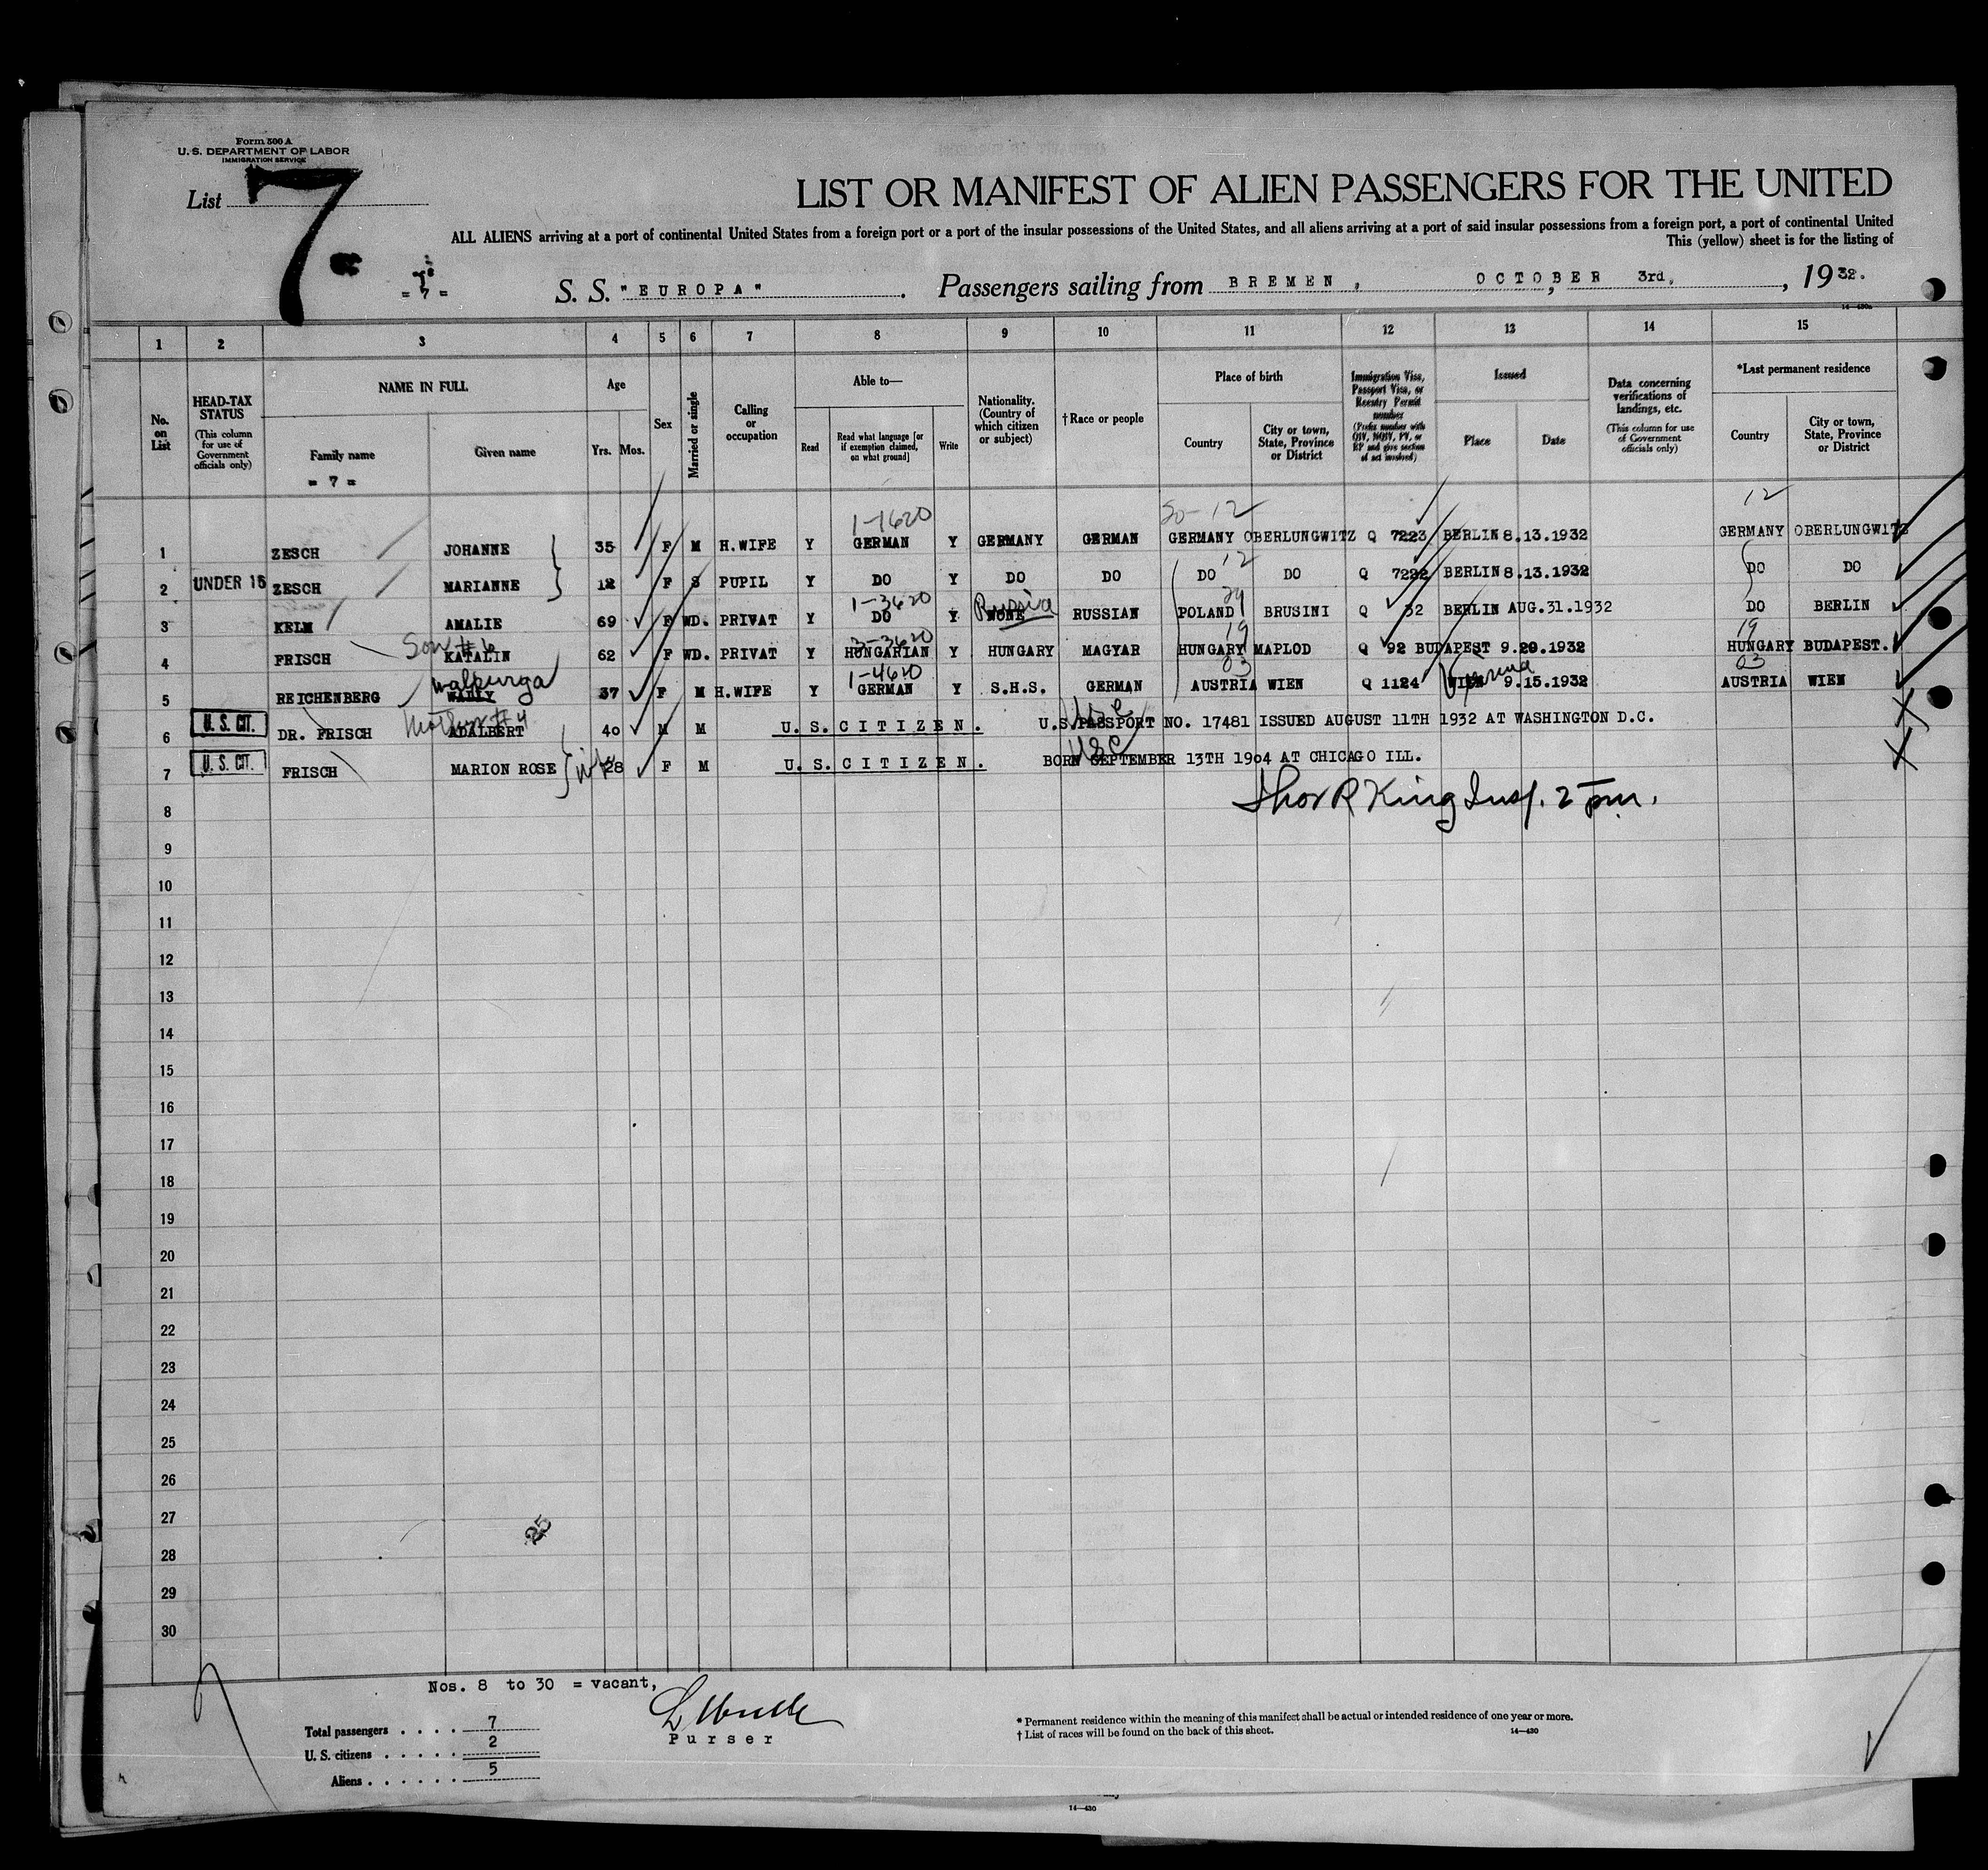 Form 500 A
U. S. DEPARTMENT OF LABOR
IMMIGRATION SERVICE
List 7
= 7 =
LIST OR MANIFEST OF ALIEN PASSENGERS FOR THE UNITED
ALL ALIENS arriving at a port of continental United States from a foreign port or a port of the insular possessions of the United States, and all aliens arriving at a port of said insular possessions from a foreign port, a port of continental United
This (yellow) sheet is for the listing of
S. S. "EUROPA" . Passengers sailing from BREMEN , OCTOBER 3rd, , 1932.
14—430a
1 2 3 4 5 6 7 8 9 10 11 12 13 14 15
No. on List
HEAD-TAX STATUS (This column for use of Government officials only)
NAME IN FULL
Family name
Given name
= 7 =
Age
Yrs. Mos.
Sex
Married or single
Calling or occupation
Able to—
Read
Read what language [or if exemption claimed, on what ground]
Write
Nationality. (Country of which citizen or subject)
† Race or people
Place of birth
Country
City or town, State, Province or District
Immigration Visa, Passport Visa, or Reentry Permit number (Prefix number with QIV, NQIV, PV, or RP and give section of act involved)
Issued
Place
Date
Data concerning verifications of landings, etc. (This column for use of Government officials only)
*Last permanent residence
Country
City or town, State, Province or District
1-1620 12
1 ZESCH JOHANNE 35 F M H.WIFE Y GERMAN Y GERMANY GERMAN GERMANY OBERLUNGWITZ Q 7223 BERLIN 8.13.1932 GERMANY OBERLUNGWITZ
12
2 UNDER 16 ZESCH MARIANNE 12 F S PUPIL Y DO Y DO DO DO DO Q 7222 BERLIN 8.13.1932 DO DO
1-3620 Russia
3 KELM AMALIE 69 F WD. PRIVAT Y DO Y NONE RUSSIAN POLAND BRUSINI Q 32 BERLIN AUG.31.1932 DO BERLIN
Son #6 3-3620 19 19
4 FRISCH KATALIN 62 F WD. PRIVAT Y HUNGARIAN Y HUNGARY MAGYAR HUNGARY MAPLOD Q 92 BUDAPEST 9.20.1932 HUNGARY BUDAPEST.
Walpurga 1-4620 03 Vienna 03
5 REICHENBERG WALLY 37 F M H.WIFE Y GERMAN Y S.H.S. GERMAN AUSTRIA WIEN Q 1124 WIEN 9.15.1932 AUSTRIA WIEN
Mother #4 USC
6 U. S. CIT. DR. FRISCH ADALBERT 40 M M U.S.CITIZEN. U.S.PASSPORT NO. 17481 ISSUED AUGUST 11TH 1932 AT WASHINGTON D.C.
wife USC
7 U. S. CIT. FRISCH MARION ROSE 28 F M U.S.CITIZEN. BORN SEPTEMBER 13TH 1904 AT CHICAGO ILL.
8 Thor R King Insp. 2 pm.
9
10
11
12
13
14
15
16
17
18
19
20
21
22
23
24
25
26
27
25
28
29
30
Nos. 8 to 30 = vacant,
Total passengers . . . . 7
U. S. citizens . . . . . 2
Aliens . . . . . . 5
Purser
* Permanent residence within the meaning of this manifest shall be actual or intended residence of one year or more.
† List of races will be found on the back of this sheet.
14—430
14—430